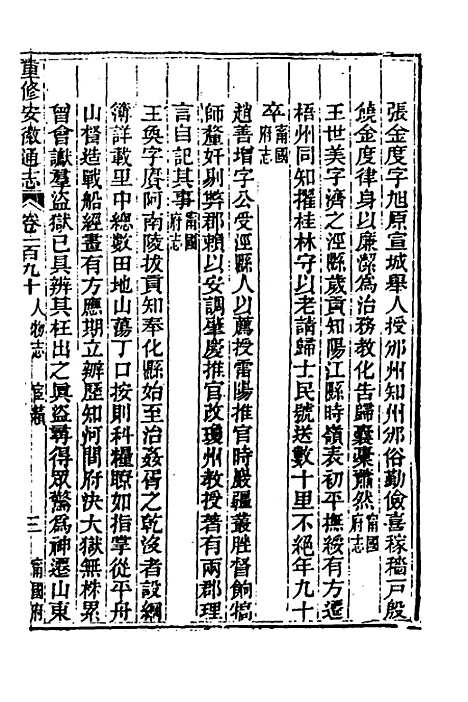 張金度字旭原宣城舉人授邠州知州邠俗勤儉喜稼穡戸殷
饒金度律身以廉潔為治務教化告歸囊橐蕭然甯國府志
王世美字濟之涇縣歲貢知陽江縣時嶺表初平撫綏有方遷
梧州同知擢桂林守以老請歸士民號送數十里不絕年九十
卒甯國府志
趙善增字公受涇縣人以薦授雷陽推官時嚴疆叢脞督餉犒
師釐奸剔弊郡賴以安調肇慶推官改瓊州教授著有兩郡理
言自記其事甯國府志
王奐字賡阿南陵拔貢知奉化縣始至治姦胥之乾沒者設綱
簿詳載里中總數田地山蕩丁口按則科糧瞭如指掌從平舟
山督造戰船經畫有方應期立辦歷知河間府決大獄無株累
曾會讞羣盜獄已具辨其枉出之眞盜尋得眾驚為神遷山東
重修安徽通志 卷二百九十 人物志 宦蹟 三 甯國府